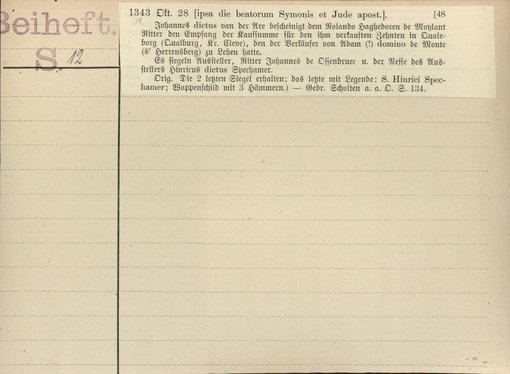 Beiheft.
S. 12
1343 Okt. 28 [ipsa die beatorum Symonis et Jude apost.]. [48
Johannes dictus van der Are bescheinigt dem Rolando Haghedoren de Moylant
Ritter den Empfang der Kaufsumme für den ihm verkauften Zehnten in Quale-
borg (Qualburg, Kr. Cleve), den der Verkäufer von Adam (!) domino de Monte
(s' Herrensberg) zu Lehen hatte.
Es siegeln Aussteller, Ritter Johannes de Ossenbruec u. der Neffe des Aus-
stellers Hinricus dictus Spechamer.
Orig. Die 2 letzten Siegel erhalten; das letzte mit Legende: S. Hinrici Spec-
hamer; Wappenschild mit 3 Hämmern.) — Gedr. Scholten a. a. O. S. 134.